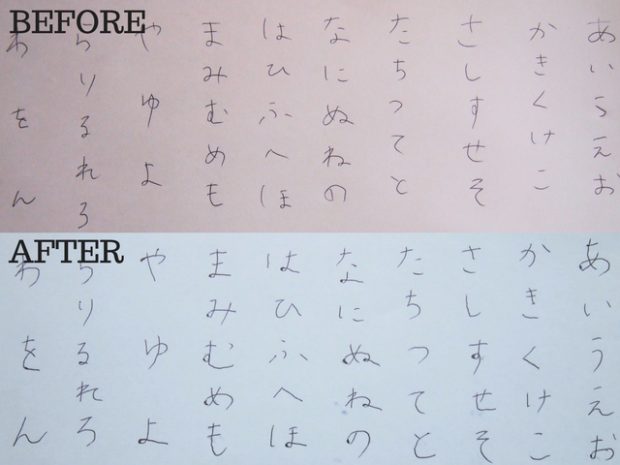 BEFORE
あいうえお
かきくけこ
さしすせそ
たちつてと
なにぬねの
はひふへほ
まみむめも
やゆよ
らりるれろ
わをん
AFTER
あいうえお
かきくけこ
さしすせそ
たちつてと
なにぬねの
はひふへほ
まみむめも
やゆよ
らりるれろ
わをん